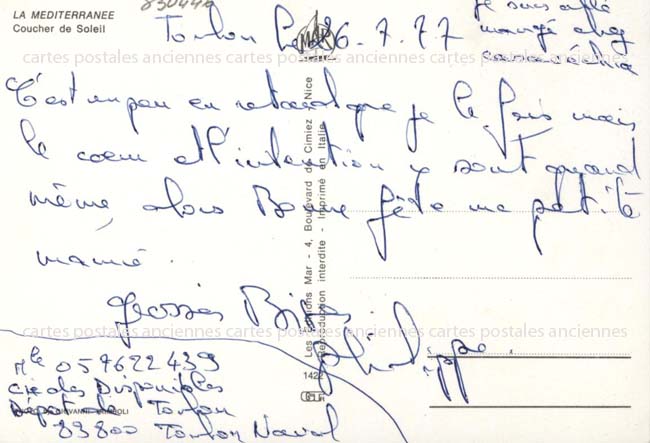 LA MEDITERRANEE
Coucher de Soleil
830440
Toulon le 26.7.77
je suis allé
mangé chez
C'est un peu en retard que je le fais mais
le coeur et l'intention y sont quand
même, alors Bonne fête ma petite
mamie.
Grosses Bises
Philippe.
Mle 057622439
Cie des Disponibles
Dépot de Toulon
83800 Toulon Naval
Les Editions Mar - 4, Boulevard de Cimiez - Nice
Reproduction interdite - Imprimé en Italie
cartes postales anciennes cartes postales anciennes cartes postales anciennes
cartes postales anciennes cartes postales anciennes cartes postales anciennes
cartes postales anciennes cartes postales anciennes cartes postales anciennes